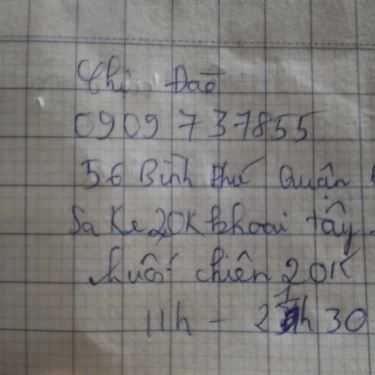 Chị Đào
0909 737855
56 Bình Phú Quận
Sa Kê 20K khoai tây
chuối chiên 20K
11h - 21h30